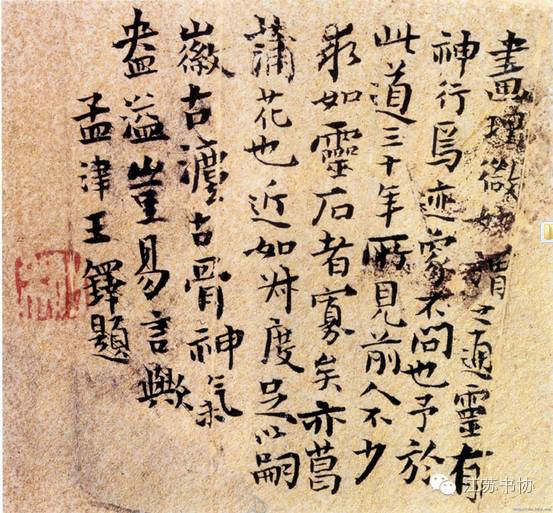 畫理微妙謂之通靈有
神行焉迹象不問也予於
此道三十年所見前人不少
求如靈石者寡矣亦菖
蒲花也近如叔度足以嗣
徽古古骨神氣
盎溢豈易言歟
孟津王鐸題
江苏书协